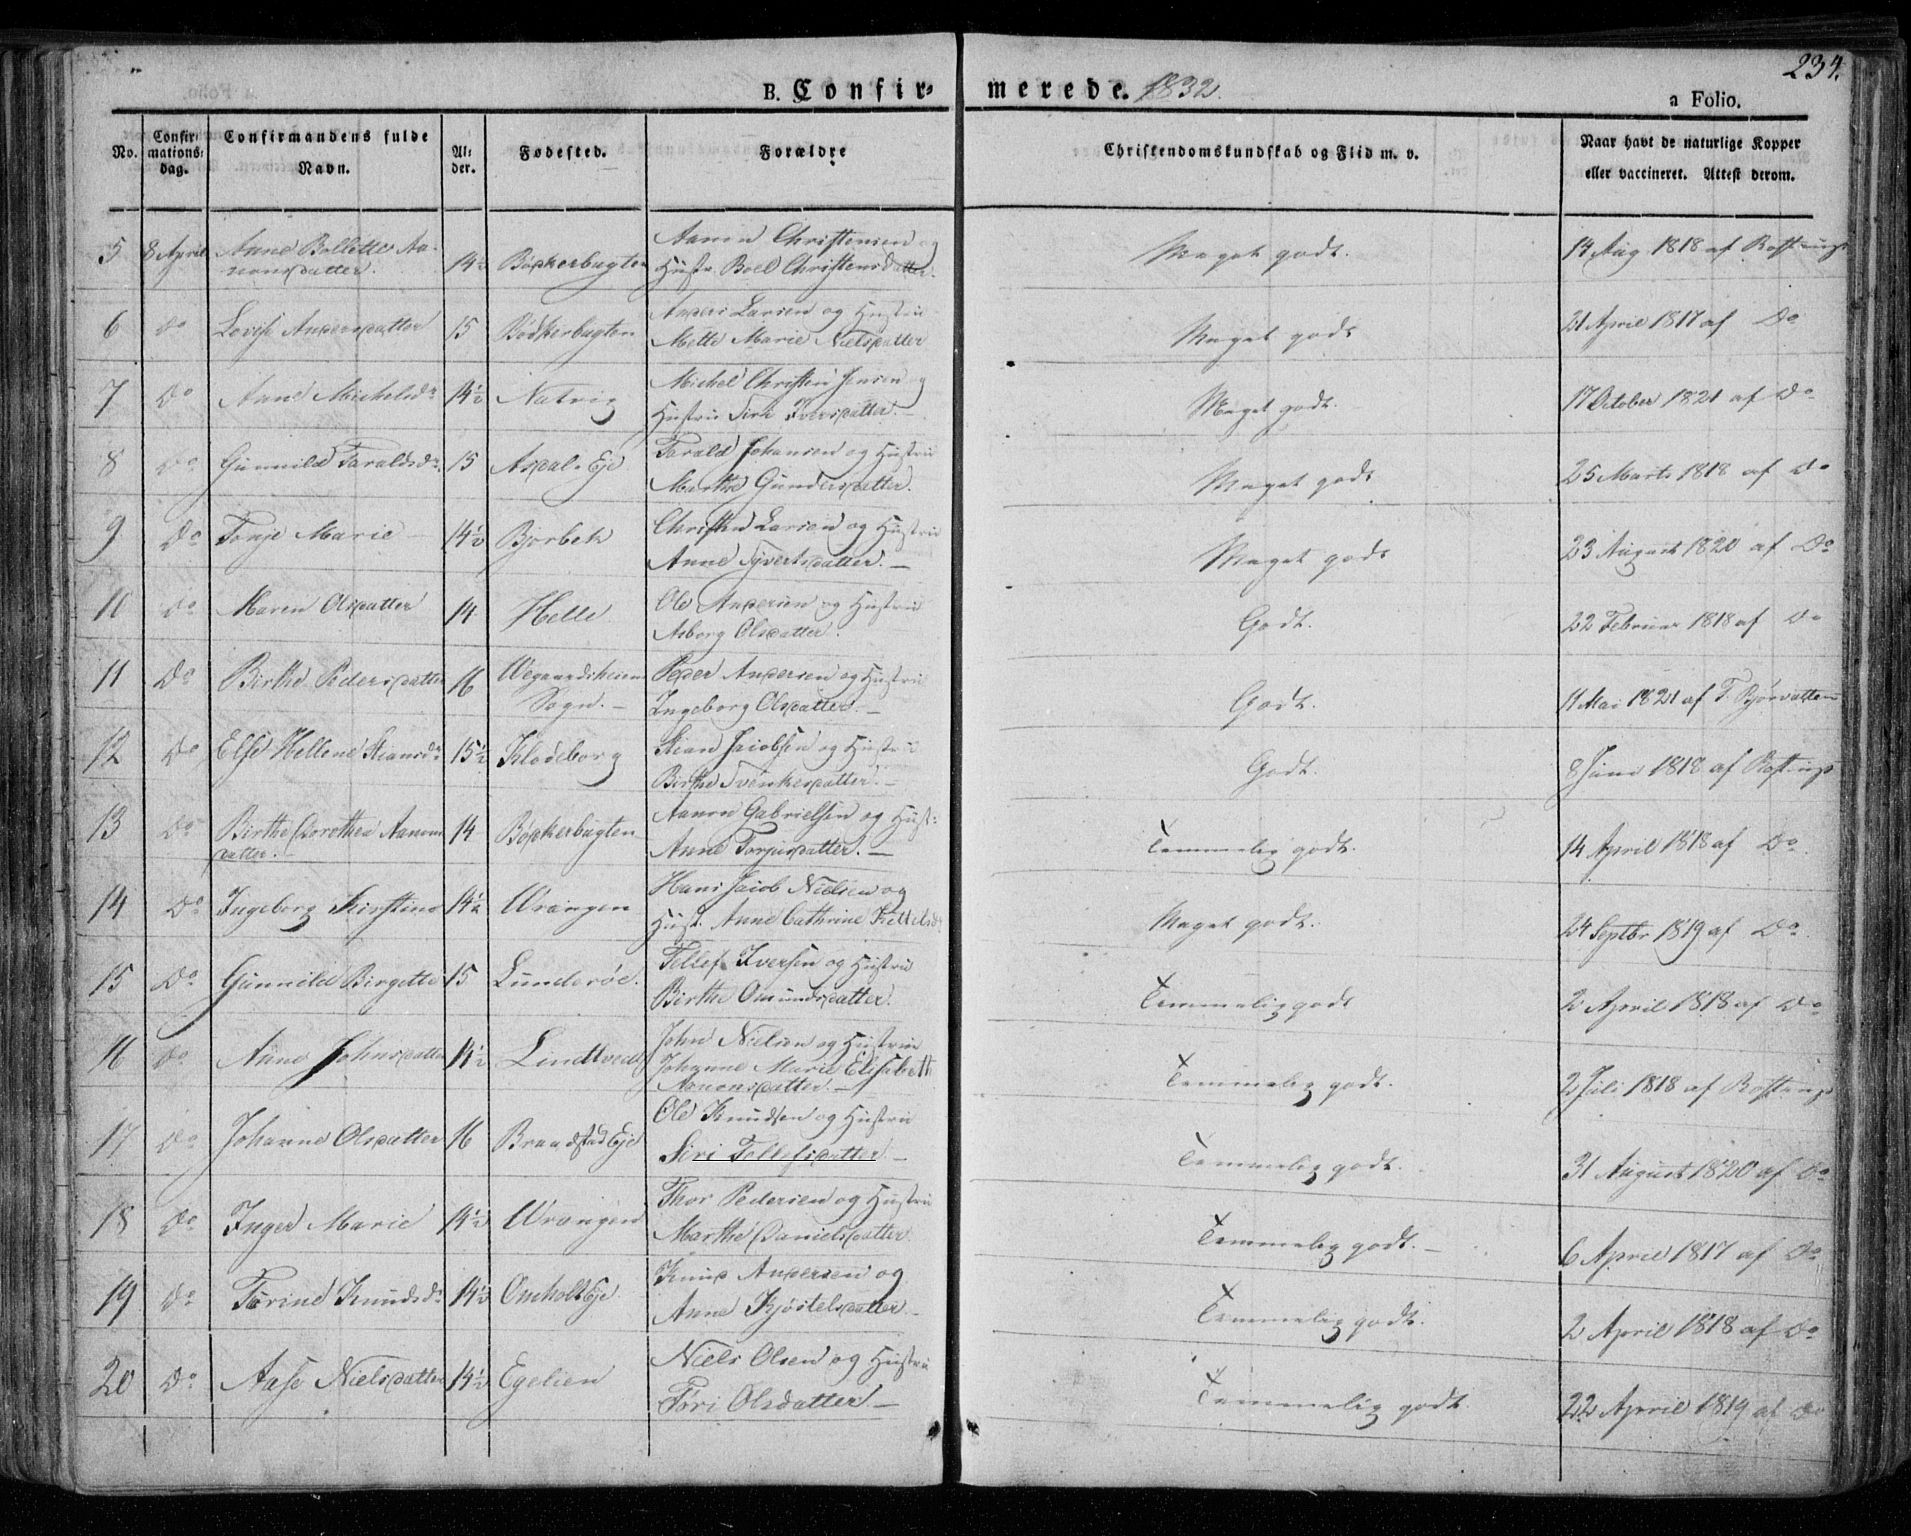 234.
B. Confir- merede. 1832.
a Folio.
No.
Confir-
mations-
dag.
Confirmandens fulde
Navn.
Al-
der.
Fødested.
Forældre
Christendomskundskab og Flid m. v.
Naar havt de naturlige Kopper
eller vaccineret. Attest derom.
5 8 April Anne Bollette Aa-
nonsdatter. 14½ Bødkerbugten
Aanon Christensen og
Hustr. Boel Christensdatter.
Meget godt. 14 Aug 1818 af Rostrup
6 Do Lovise Andersdatter 15 Bødkerbugten
Anders Larsen og Hustru
Mette Marie Nielsdatter
Meget godt 21 April 1817 af Do
7 Do Anne Michelsdr 14½ Natvig
Michel Christen Jensen og
Hustru Siri Iversdatter. —
Meget godt. 17 October 1821 af Do
8 Do Gunnild Taraldsdr. 15 Asdal-Eje
Tarald Johansen og Hustru
Marthe Gundersdatter.
Meget godt 25 Marts 1818 af Do
9 Do Tonje Marie 14½ Bjorbek
Christen Larsen og Hustru
Anne Syvertsdatter. —
Meget godt 23 August 1820 af Do
10 Do Maren Olsdatter 14 Helle
Ole Andersen og Hustru
Asborg Olsdatter.
Godt. 22 Februar 1818 af Do
11 Do Birthe Pedersdatter 16 Wegaardsheiens
Sogn. —
Peder Andersen og Hustru
Ingeborg Olsdatter. —
Godt. 11 Mai 1821 af T. Bjørvatten
12 Do Else Hellene Stiansdr 15½ Klodeborg
Stian Jacobsen og Hustru
Birthe Svenkesdatter. —
Godt. 8 Juni 1818 af Rostrup
13 Do Birthe Dorothea Aanons
datter. — 14 Bødkerbugten
Aanon Gabrielsen og Hust:
Anne Torjusdatter. —
Temmelig godt. 14 April 1818 af Do
14 Do Ingeborg Kirstine 14½ Wrangen
Hans Jacob Nielsen og
Hust. Anne Cathrine Kettelsdr
Meget godt. 24 Septbr 1819 af Do
15 Do Gunnild Birgette 15 Lunderöe.
Tellef Iversen og Hustru
Birthe Omundsdatter.
Temmelig godt 2 April 1818 af Do
16 Do Anne Johnsdatter 14½ Lindtved
John Nielsen og Hustrue
Johanne Marie Elisabeth
Aanonsdatter. —
Temmelig godt. 2 Juli 1818 af Rostrup
17 Do Johanne Olsdatter 16 Braadstad Eje
Ole Knudsen og Hustru
Siri Tellefsdatter. —
Temmelig godt. 31 August 1820 af Do
18 Do Inger Marie 14½ Wrangen
Thor Pedersen og Hustru
Marthe Danielsdatter
Temmelig godt. — 6 April 1817 af Do
19 Do Torine Knudsdr 14½ Omholt Eje
Knud Andersen og
Anne Kjöstelsdatter —
Temmelig godt. 2 April 1818 af Do
20 Do Aase Nielsdatter 14½ Egelien
Niels Olsen og Hustru
Töri Olsdatter —
Temmelig godt. 22 April 1819 af Do